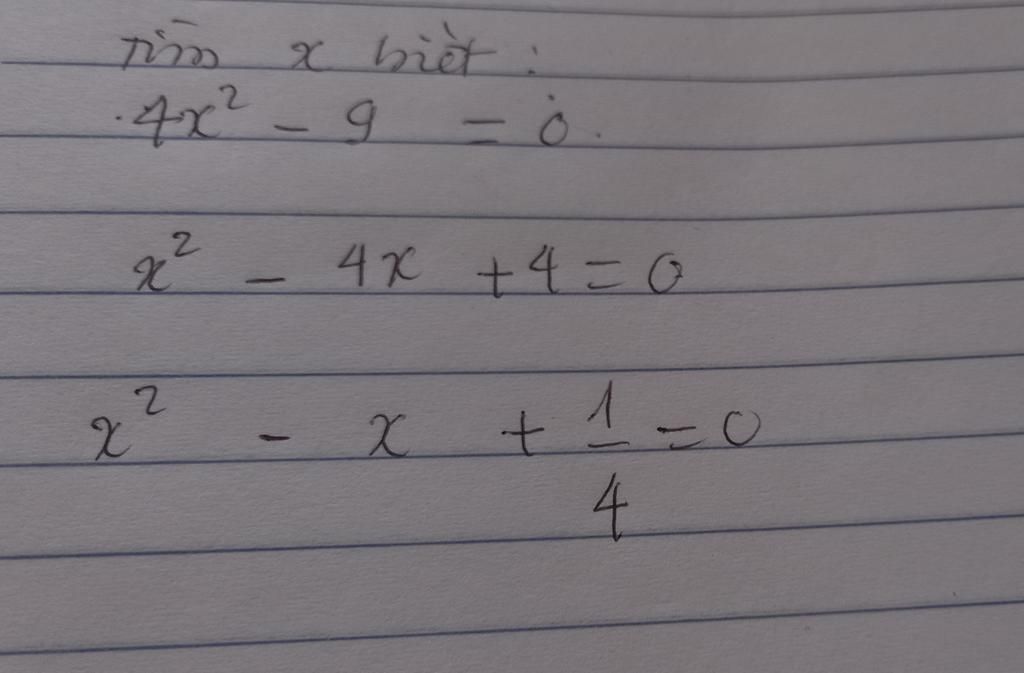 Tìm x biết :
4x² - 9 = 0.
x² - 4x + 4 = 0
x² - x + 1/4 = 0